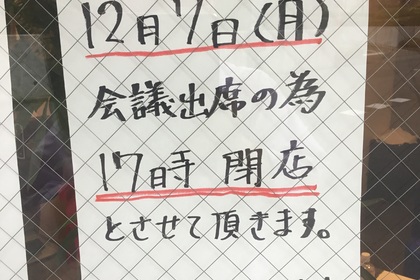 12月7日(月)
会議出席の為
17時 閉店
とさせて頂きます。